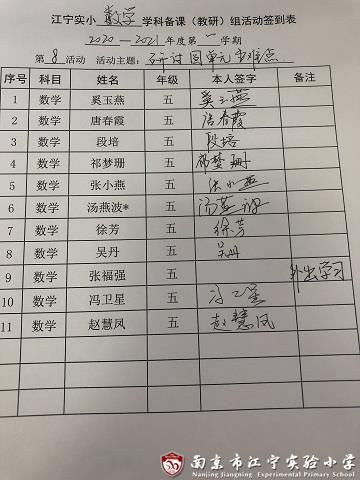 江宁实小 数学 学科备课（教研）组活动签到表
2020—2021年度第一学期
第 8 活动 活动主题：研讨 单元重难点
序号 科目 姓名 年级 本人签字 备注
1 数学 奚玉燕 五 奚玉燕
2 数学 唐春霞 五 唐春霞
3 数学 段培 五 段培
4 数学 祁梦珊 五 祁梦珊
5 数学 张小燕 五 张小燕
6 数学 汤燕波* 五 汤燕波
7 数学 徐芳 五 徐芳
8 数学 吴丹 五 吴丹
9 数学 张福强 五 外出学习
10 数学 冯卫星 五 冯卫星
11 数学 赵慧凤 五 赵慧凤
南京市江宁实验小学
Nanjing Jiangning Experimental Primary School